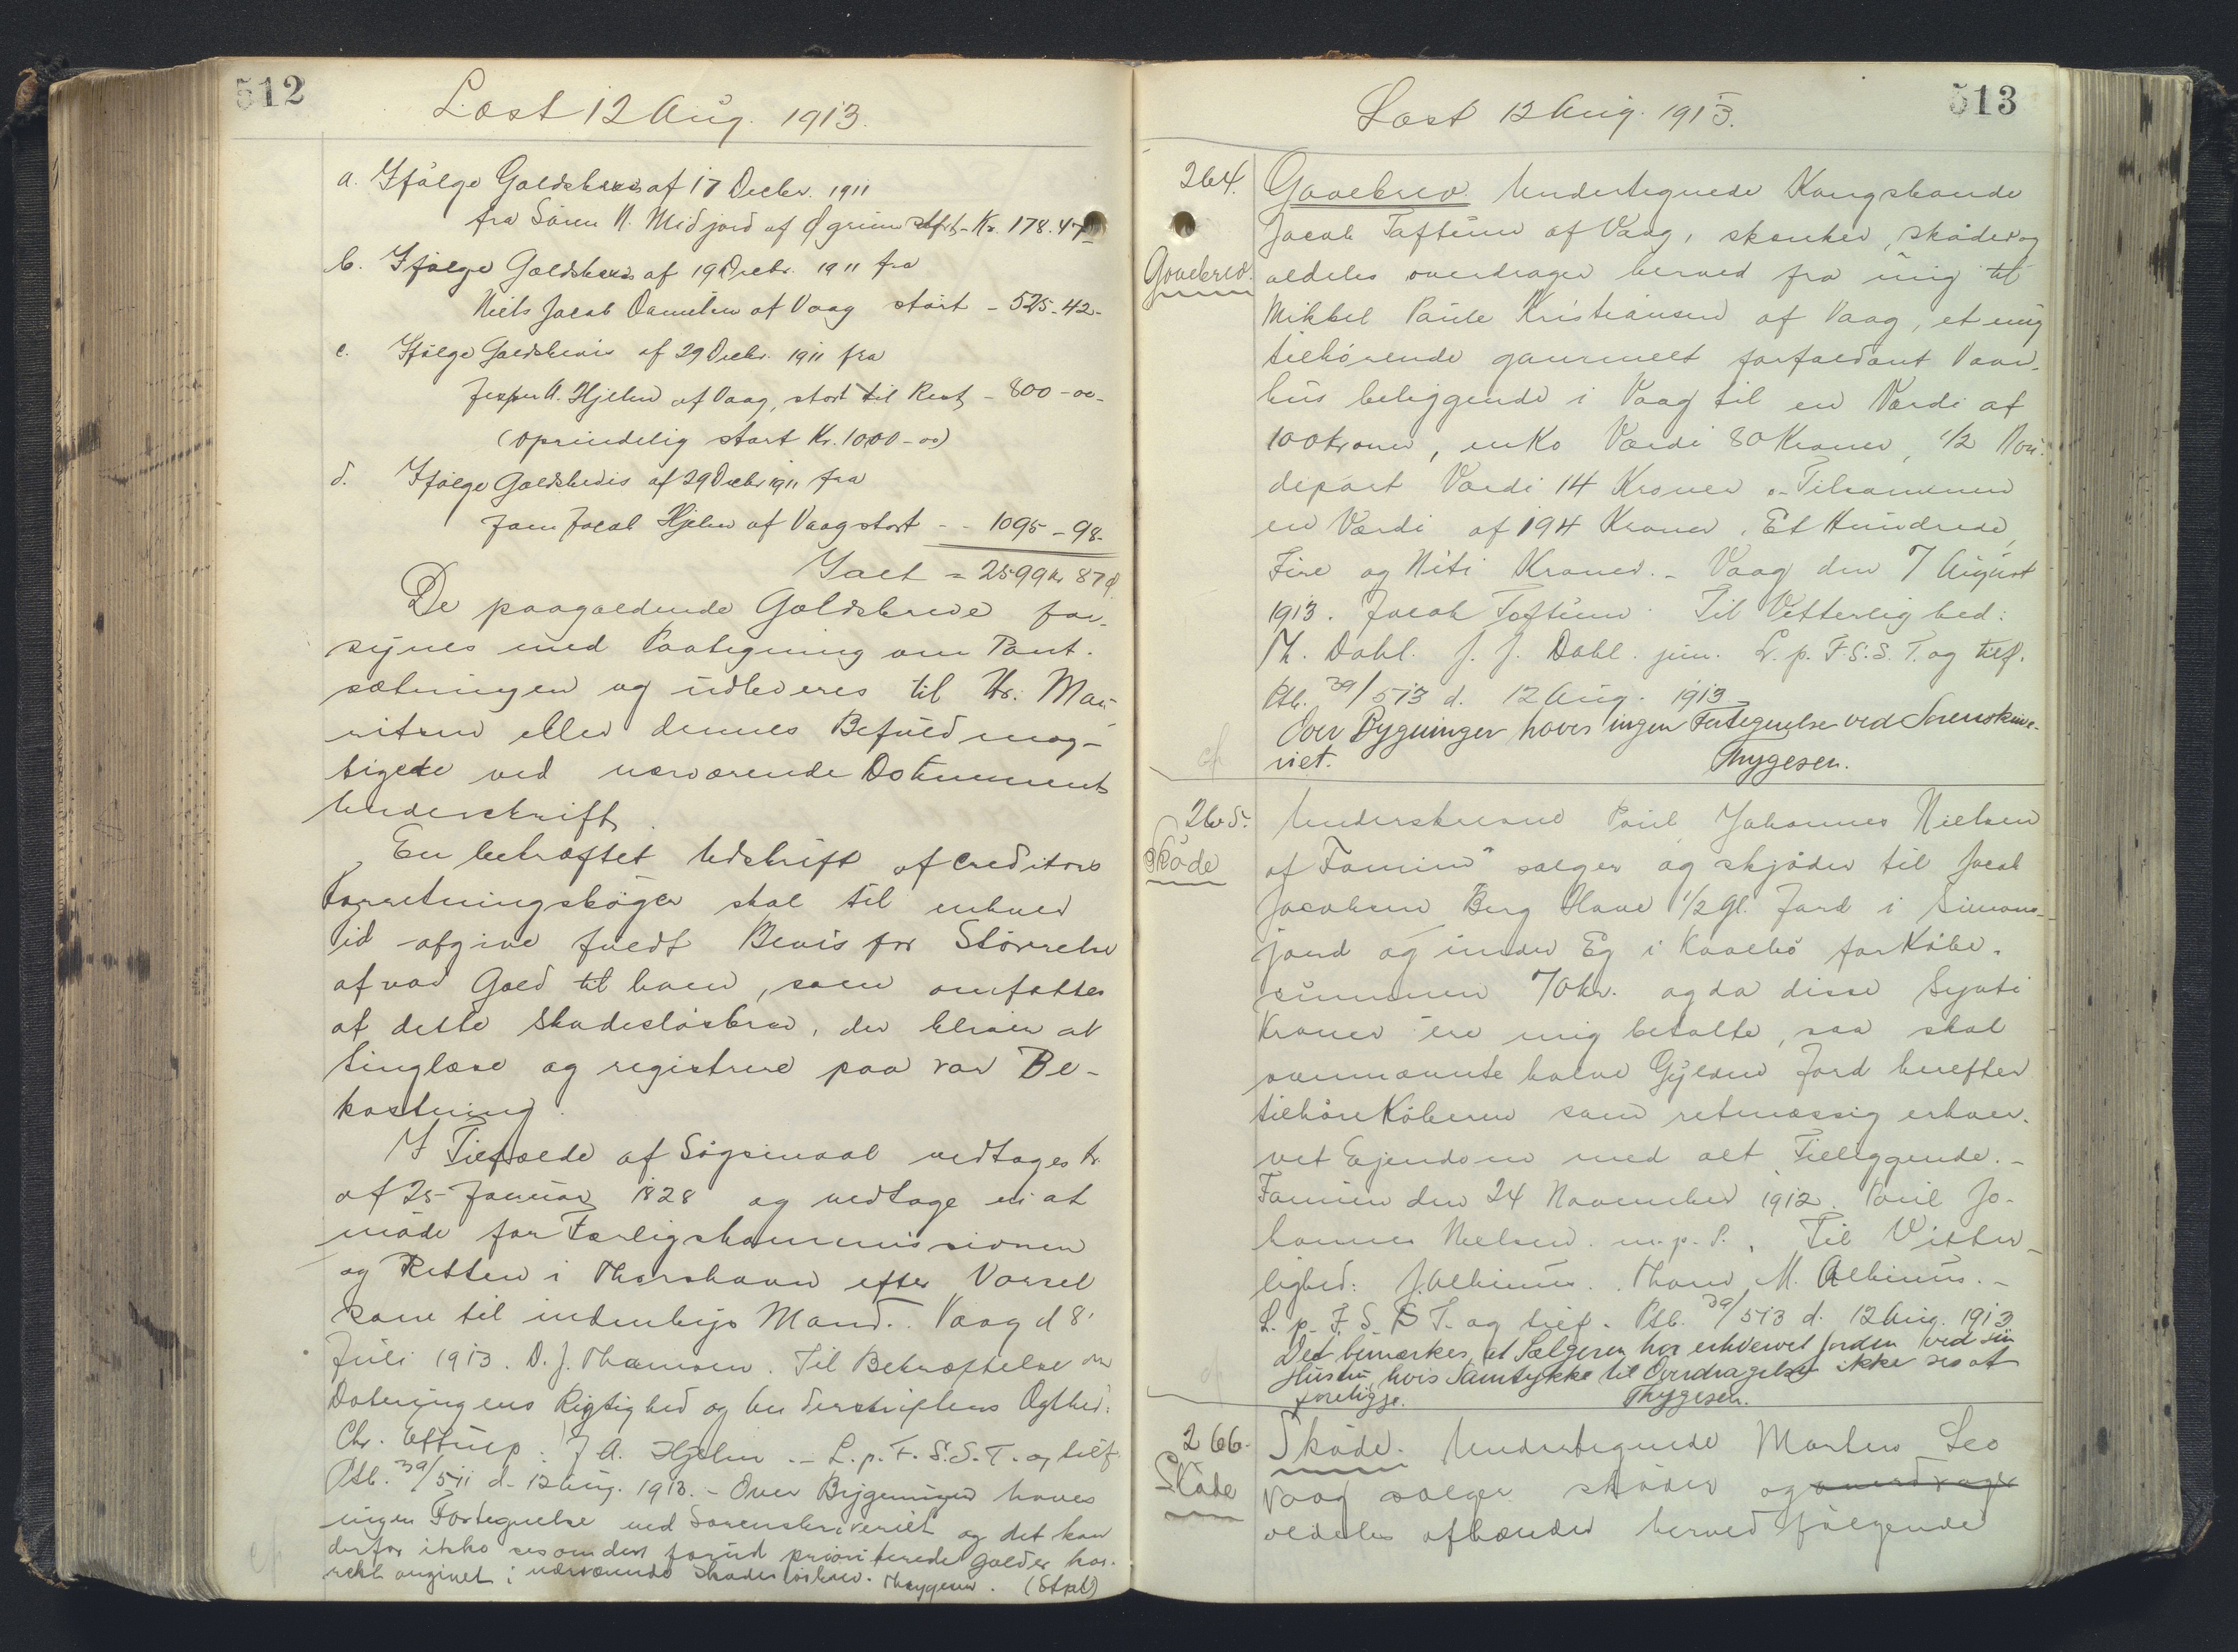 512
Læst 12 Aug. 1913.
a. Ifølge Gældsbevis af 17 Decbr. 1911
fra Sören N. Midjord af Øgrim stort - Kr. 178.47
b. Ifølge Gældsbevis af 19 Decbr. 1911 fra
Niels Jacob Danielsen af Vaag stort - 525-42-
c. Ifølge Gældsbevis af 29 Decbr. 1911 fra
Jesper A. Hjelm af Vaag, stort til Rest - 800-00-
(oprindelig stort Kr. 1000-00)
d. Ifølge Gældsbevis af 29 Decbr 1911 fra
Joen Jacob Hjelm af Vaag stort - - 1095-98-
Ialt = 2599 Kr 87 Ø.
De paagældende Gældsbreve for-
synes med Paategning om Pant-
sætningen og udleveres til Hr. Mau-
ritsen eller dennes Befuldmæg-
tigede ved nærværende Dokuments
Underskrift.
En bekræftet Udskrift af Creditors
Forretningsbøger skal til enhver
Tid afgive fuldt Bevis for Størrelse
af vor Gæld til ham, som omfattes
af dette Skadesløsbrev, der bliver at
tinglæse og registrere paa vor Be-
kostning.
I Tilfælde af Søgsmaal vedtages Fr.
af 25 Januar 1828 og vedtage vi at
møde for Forligskommissionen
og Retten i Thorshavn efter Varsel
som til indenbys Mand. Vaag d 8'
Juli 1913. D. J. Thomsen. Til Bekræftelse om
Dateringens Rigtighed og Underskriftens Ægthed:
Chr. Eltrup. J A. Hjelm .- L. p. F. S. S. T. og tilf.
Ptb. 39/511 d. 12 Aug. 1913. - Over Bygninger haves
ingen Fortegnelse ved Sorenskriveriet og det kan
derfor ikke ses om den forud prioriterede Gæld er kor-
rekt angivet i nærværende Skadesløsbrev. Thygesen. (Stpl)
513
Læst 12 Aug. 1913.
264. Gavebrev. Undertegnede Kongsbonde
Jacob Toftum af Vaag, skænker, skøder og
Gavebrev. aldeles overdrager herved fra mig til
Mikkel Paule Kristiansen af Vaag, et mig
tilhørende gammelt forfaldent Vaan-
hus beliggende i Vaag til en Værdi af
100 Kroner, en Ko Værdi 80 Kroner, 1/2
depart Værdi 14 Kroner .- Tilsammen
en Værdi af 194 Kroner. Et Hundrede
Fire og Niti Kroner. - Vaag den 7 August
1913. Jacob Toftum. Til Vitterlighed:
Th. Dahl. J. J. Dahl. jun. L. p. F. S. S. T. og tilf.
Ptb. 39/513 d. 12 Aug. 1913
Over Bygninger haves ingen Fortegnelse ved Sorenskrive-
riet. Thygesen.
265. Underskrevne Poul Johannes Nielsen
Skøde af Famien sælger og skjøder til Jacob
Jacobsen Berg Hove 1/2 Gl. Jord i Simons-
jord og under Eg i Kvalbø for Købe-
summen 70 kr. og da disse Syvti
Kroner ere mig betalte, saa skal
ovennævnte halve Gylden Jord herefter
tilhøre Køberen som retmæssig erhver-
vet Ejendom med alt Tilliggende.-
Famien den 24 November 1912. Poul Jo-
hannes Nielsen. m. p. P. Til Vitter-
lighed: J. Albinus. Thom. M. Albinus.-
L. p. F. S. S. T. og tilf. Ptb. 39/513 d. 12 Aug. 1913
Det bemærkes, at Sælgeren har erhvervet Jorden ved sin
Hustru, hvis Samtykke til Overdragelsen ikke ses at
foreligge. Thygesen.
266. Skøde. Undertegnede Morten Leo
Skøde Vaag sælger skøder og overdrager
aldeles afhænder herved følgende